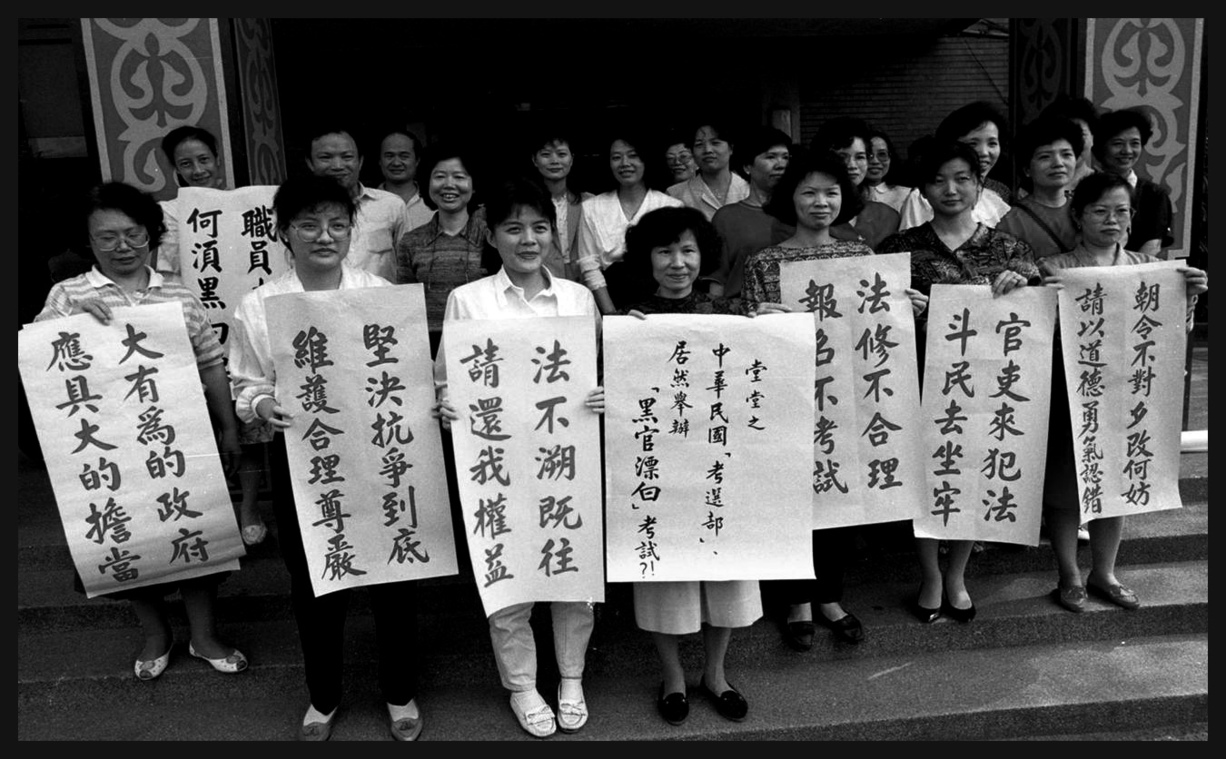 大有為的政府
應具大的擔當
職員
何須黑
堅決抗爭到底
維護合理尊嚴
法不溯既往
請還我權益
堂堂之
中華民國「考選部」、
居然舉辦
「黑官漂白」考試?!
法修不合理
報名不考試
官吏來犯法
斗民去坐牢
朝令不對夕改何妨
請以道德勇氣認錯